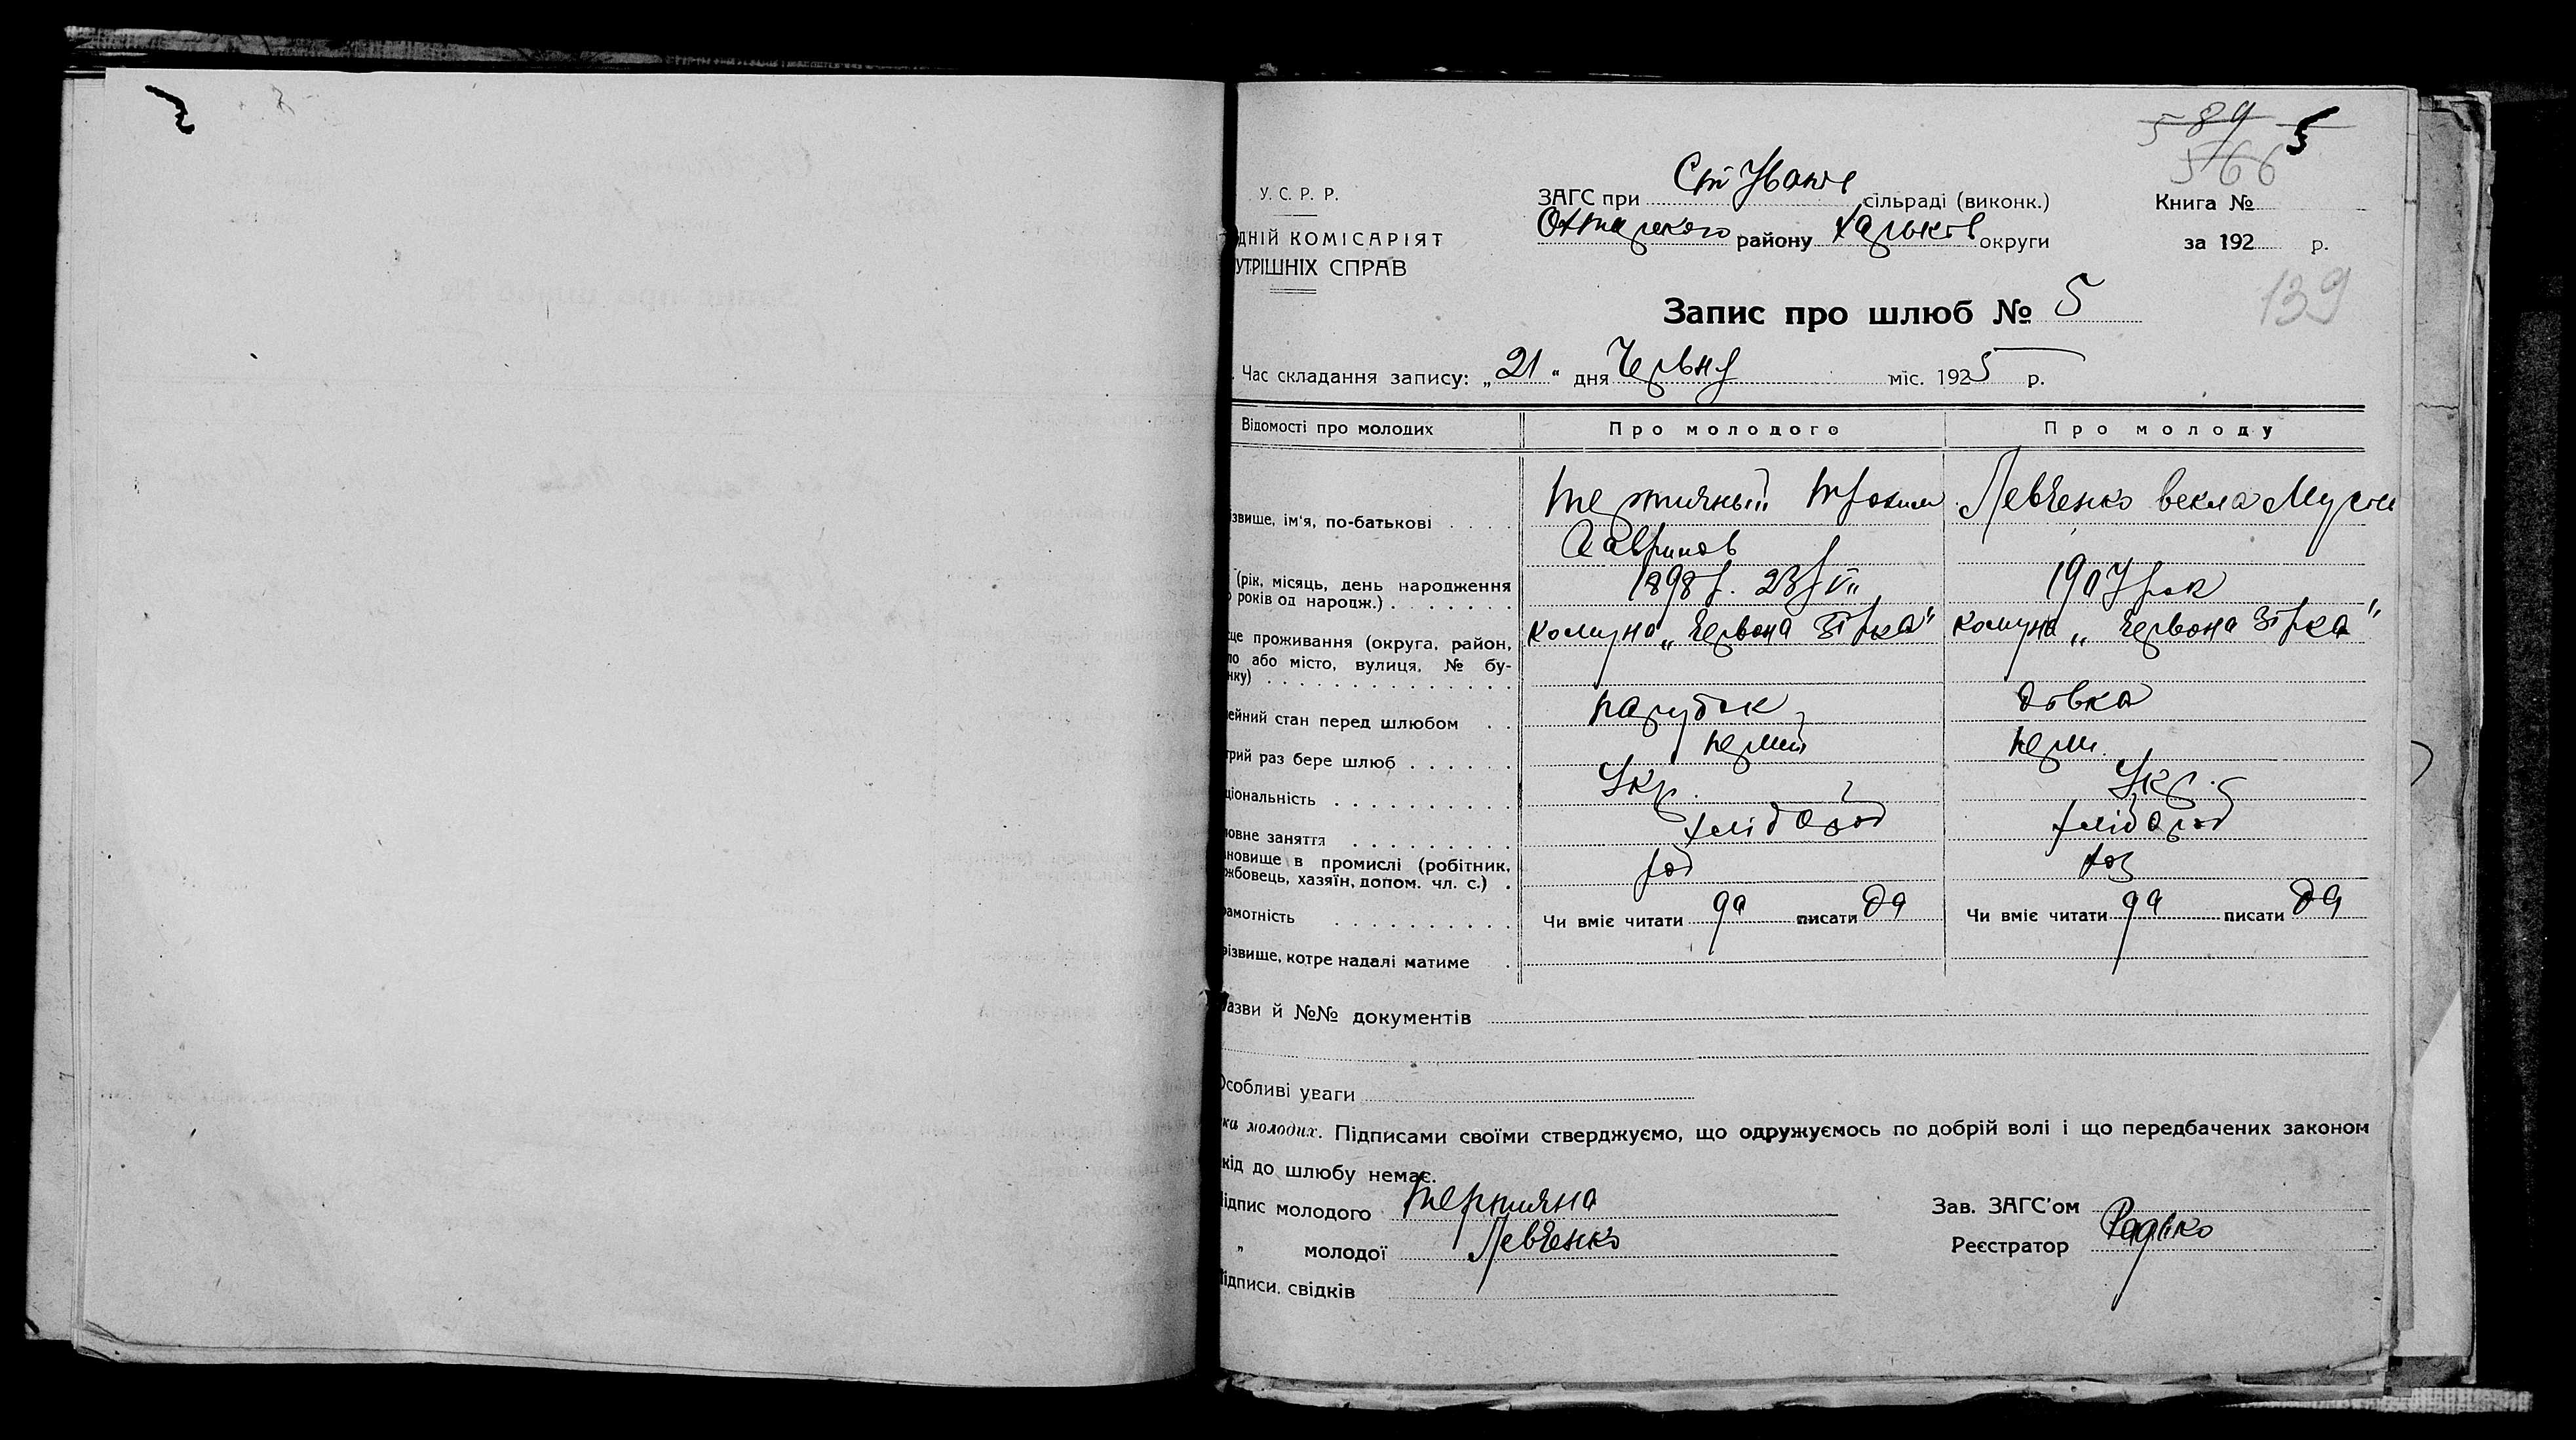 589 5
566
У. С. Р. Р.
ЗАГС при Ст Іванів сільраді (виконк.)
Книга №
ДНІЙ КОМІСАРІЯТ
района Харьків округи
за 192 р.
УТРІШНІХ СПРАВ
139
Запис про шлюб № 5
Час складання запису: „21" дня Червня міс. 1925 р.
Відомості про молодих
Про молодого
Про молоду
ізвище, ім'я, по-батькові
Трохим
Левченко векла Мусии
Гаврилов
(рік, місяць, день народження
років од народж.)
1898 р. 23/VII
1907 рок
це проживання (округа, район,
ло або місто, вулиця, № бу-
нку)
комуна „Червона Зірка"
комуна „Червона Зірка"
ейний стан перед шлюбом
парубок
дівка
трий раз бере шлюб
перший
перш.
ціональність
Укр.
Укр.
ловне заняття
хлібороб
хлібороб
ановище в промислі (робітник,
жбовець, хазяїн, допом. чл. с.)
рамотність
Чи вміє читати да писати да
Чи вміє читати да писати да
різвище, котре надалі матиме
Назви й №№ документів
Особливі уваги
ка молодих. Підписами своїми стверджуємо, що одружуємось по добрій волі і що передбачених законом
кід до шлюбу немає.
Підпис молодого
Зав. ЗАГС'ом
„ молодої Левченко
Реєстратор Редько
Підписи, свідків